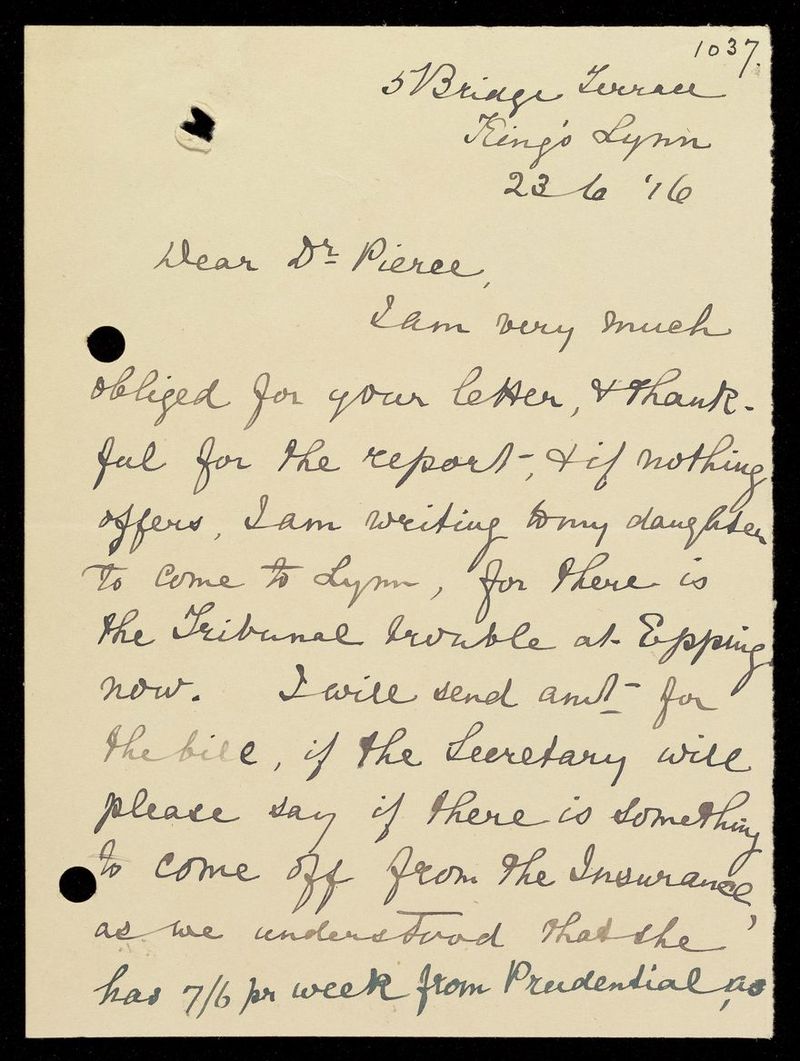 1037.
5 Bridge Terrace
King's Lynn
23 6 '16
Dear Dr Pierce,
I am very much
obliged for your letter, & thank-
ful for the report, & if nothing
offers, I am writing to my daughter
to come to Lynn, for there is
the Tribunal trouble at Epping
now. I will send amt for
the bill, if the Secretary will
please say if there is something
to come off from the Insurance,
as we understood that she
has 7/6 pr week from Prudential, as